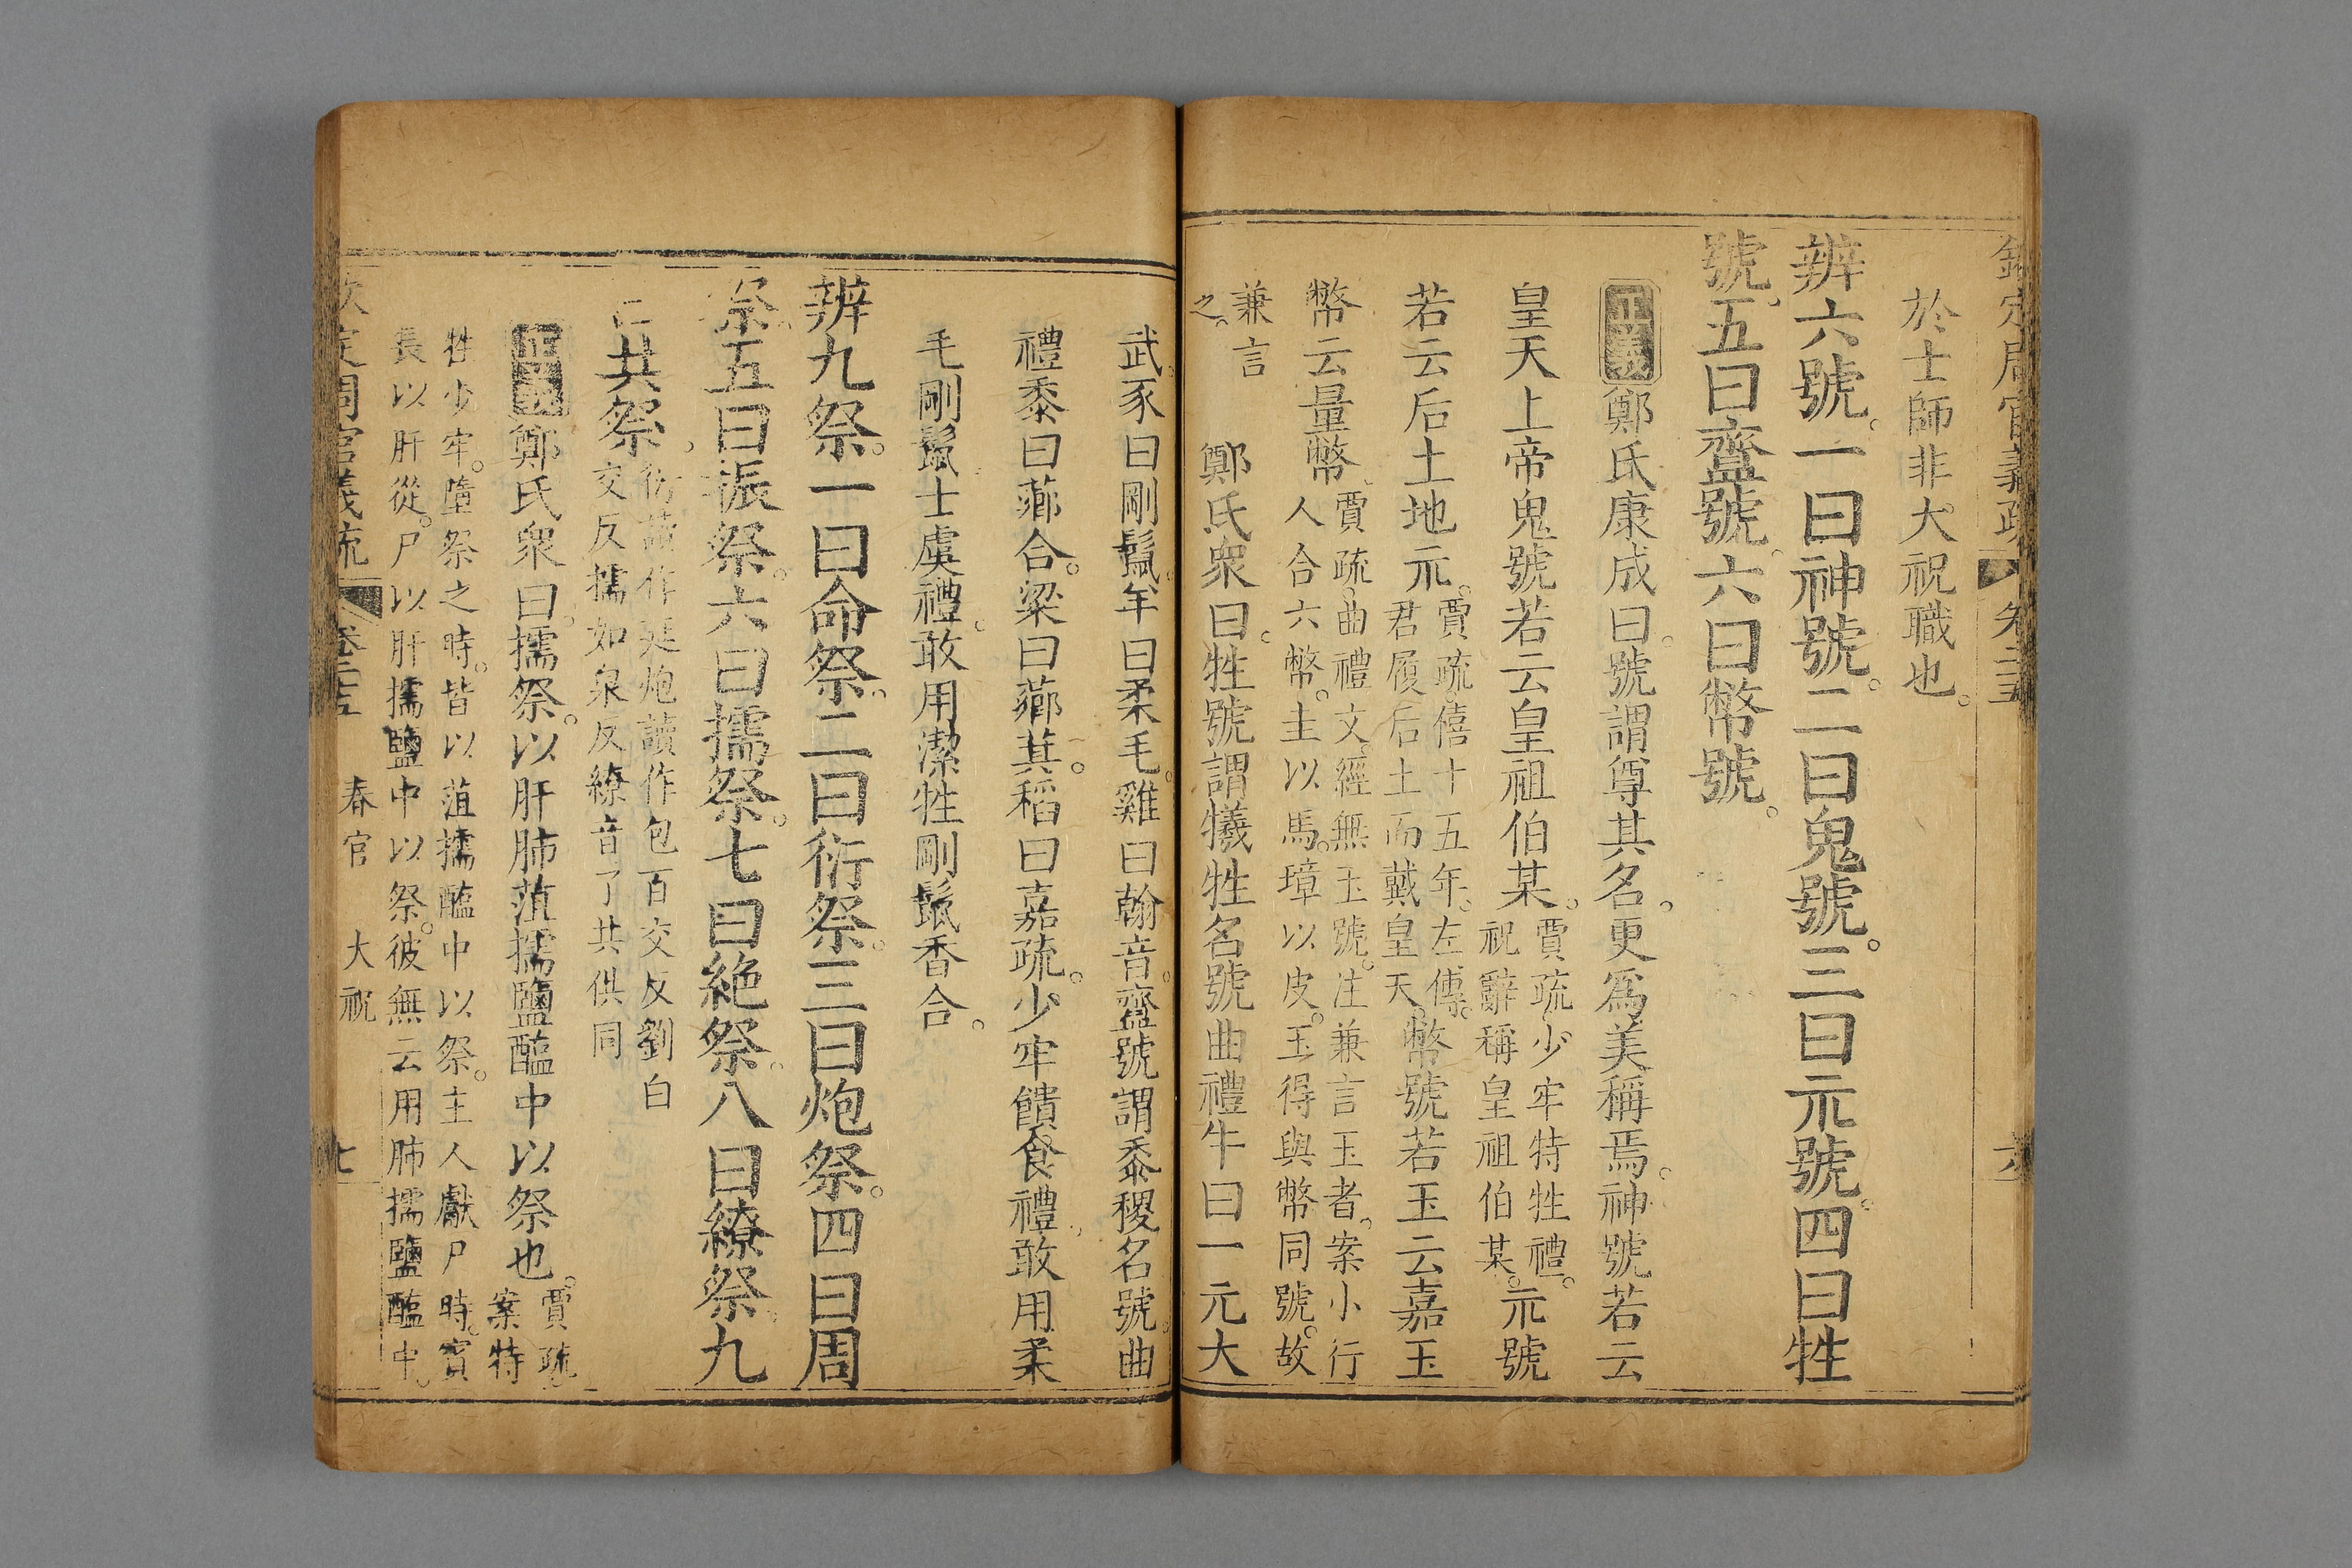 欽定周官義疏 卷二十五 六
於士師非大祝職也。
辨六號。一曰神號。二曰鬼號。三曰示號。四曰牲
號。五曰齍號。六曰幣號。
正義 鄭氏康成曰。號謂尊其名。更爲美稱焉。神號若云
皇天上帝鬼號若云皇祖伯某。賈疏少牢特牲禮。祝辭稱皇祖伯某。示號
若云后土地示。賈疏僖十五年。左傳。君履后土而戴皇天。幣號若玉云嘉玉
幣云量幣。賈疏。曲禮文。經無玉號。注兼言玉者。案小行
人合六幣。主以馬。璋以皮。玉得與幣同號。故
兼言之。 鄭氏衆曰。牲號謂犧牲名號曲禮牛曰一元大
武。豕曰剛鬣。羊曰柔毛。雞曰翰音。齍號謂黍稷名號。曲
禮黍曰薌合。粱曰薌萁。稻曰嘉疏。少牢饋食禮。敢用柔
毛剛鬣士虞禮。敢用潔牲剛鬣香合。
辨九祭。一曰命祭。二曰衍祭。三曰炮祭。四曰周
祭。五曰振祭。六曰擩祭。七曰絶祭。八曰繚祭。九
曰共祭。衍讀作延炮讀作包百交反劉白
交反擩如泉反繚音了共供同
正義 鄭氏衆曰。擩祭。以肝肺菹擩鹽醢中以祭也。賈疏。案特
牲少牢。墮祭之時。皆以菹擩醢中以祭。主人獻尸時。賓
長以肝從。尸以肝擩鹽中以祭。彼無云用肺擩鹽醢中。
欽定周官義疏 卷二十五 春官 大祝 七